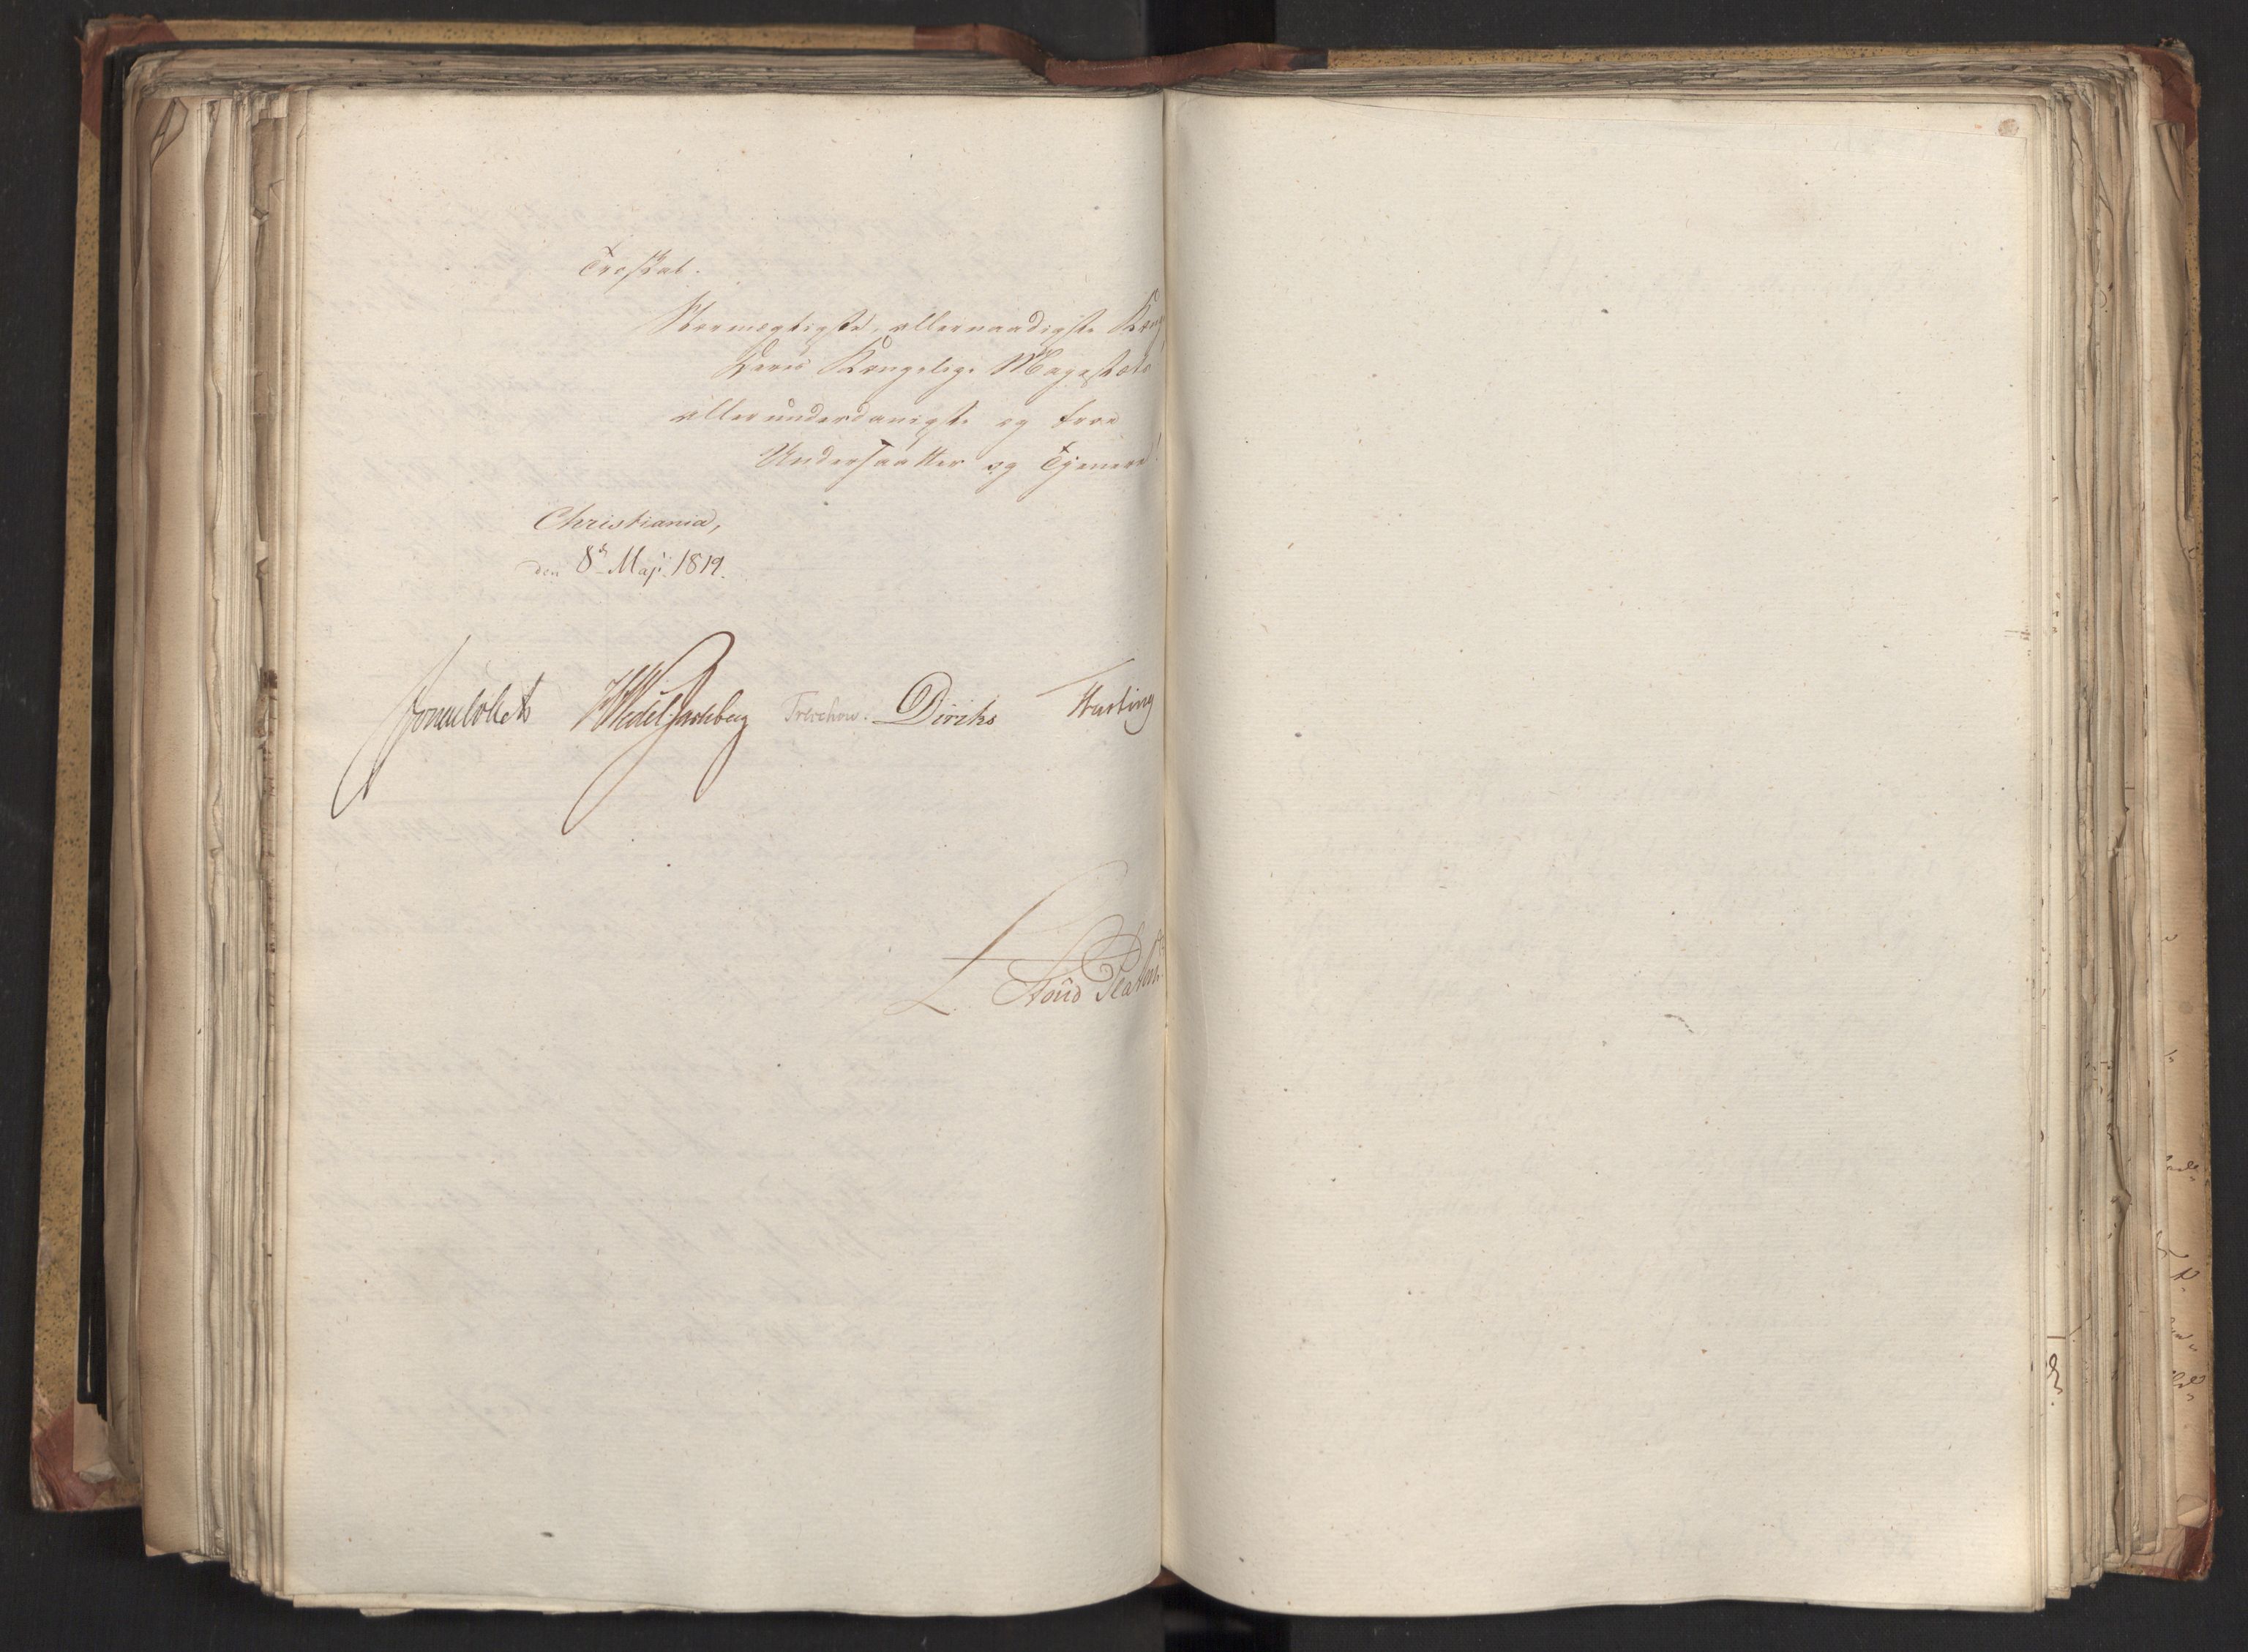 Troskab.
Stormægtigste, allernaadigste Konge
Deres Kongelige Majestæts
allerunderdanigste og troe
Undersaatter og Tjenere!
Christiania,
den 8de Maji 1819.
Sommelhielm HWedelJarlsberg Treschow. Diriks Fasting
L. Stoud Platou